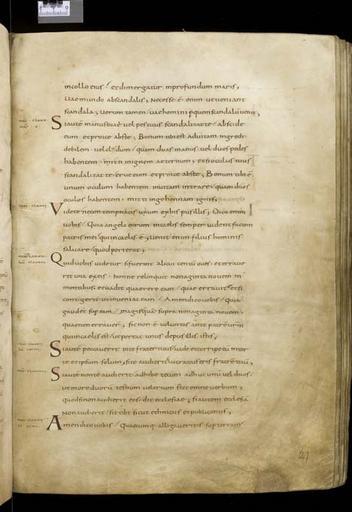 in collo eius et demergatur in profundum maris,
Vae mundo ab scandalis, Necesse ē enim ut veniant
scandala, uerum tamen uae homini per quem scandalū uenit,
Si autē manus tua vel pes tuus scandalizat te abscide
eum et proice abs te, Bonum tibi est ad uitam ingredi
debilem vel clodum quam duas manus vel duos pedes
habentem mitti in ignem aeternum, et si oculus tuus
scandalizat te erue eum et proice abs te, Bonum tibi ē
unum oculum habentem in uitam intrare quam duos
oculos habentem mitti in gehennam ignis,
Videte ne contemnatis unum ex his pusillis, Dico enim
uobis Quia angeli eorum in caelis semper uident faciem
patris mei qui in caelis ē, uenit enim filius hominis
saluare quod perierat,
Quid uobis uidetur si fuerint alicui centū oues et erraue
rit una ex eis nonne relinquit nonaginta nouem in
montibus et uadit quaerere eam quae errauit et si
contigerit ut inueniat eam Amen dico uobis Quia
gaudet sup eam magis quā supra nonaginta nouem
quae non errauer, sic non ē voluntas ante patrē urm
qui in caelis est ut pereat unus de pusillis istis,
Si autē peccauerit in te frater tuus uade et corripe eū inter
te et ipsum solum, si te audierit lucratus es fratrē tuū,
Si autē non te audierit adhibe tecum adhuc unū vel duos,
ut in ore duorū testium vel trium stet omne uerbum,
quod si non audierit eos dic ecclesiae, si autem ecclesiā
non audierit sit tibi sicut ethnicus et publicanus,
Amen dico uobis Quaecumq alligaueritis sup terram